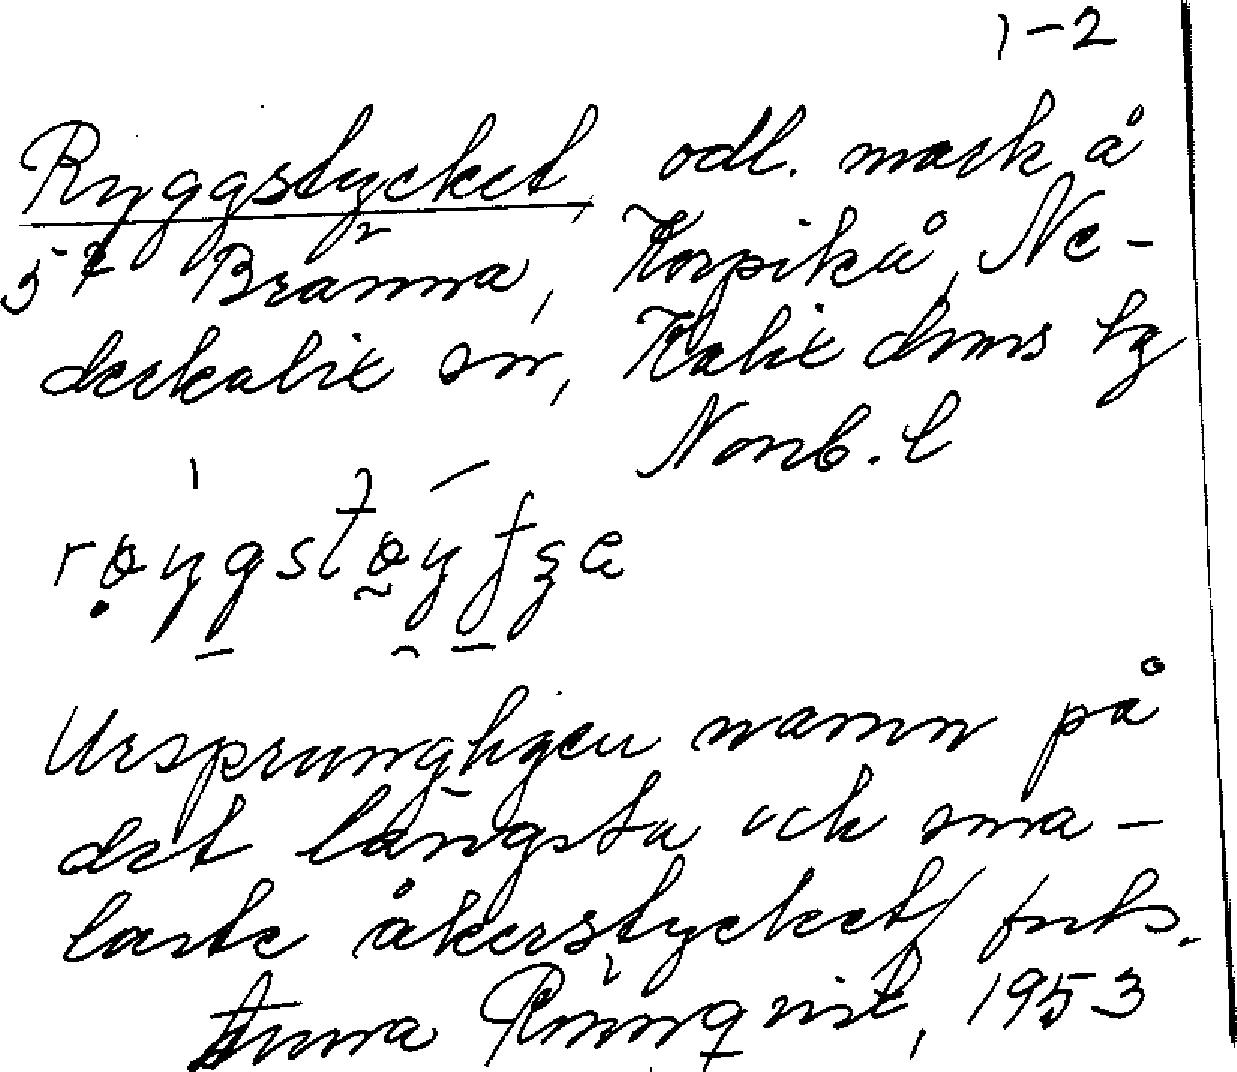 1-2
Ryggstycket, odl. mark å
5² Bränna, Korpikå, Ne-
derkalix sn, Kalix doms lg
Norrb. l
Ursprungligen namn på
det längsta och sma-
laste åkerstycket/ forts.
Anna Rönnqvist, 1953